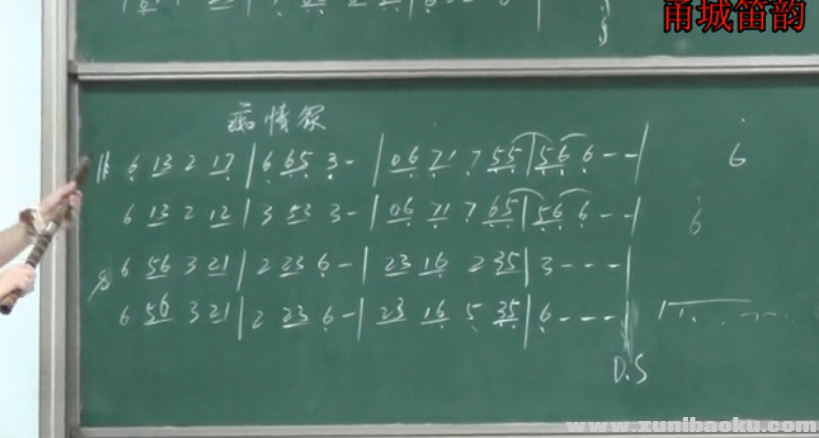 甬城笛韵
痴情冢
6 13 2 17 | 6 65 3 - | 06 71 7 55 | 56 6 - - |
6
6 13 2 12 | 3 53 3 - | 06 71 7 65 | 56 6 - - |
6
6 56 3 21 | 2 23 6 - | 23 16 2 35 | 3 - - - |
6 56 3 21 | 2 23 6 - | 23 16 5 35 | 6 - - - -
D.S
www.xunibaoku.com